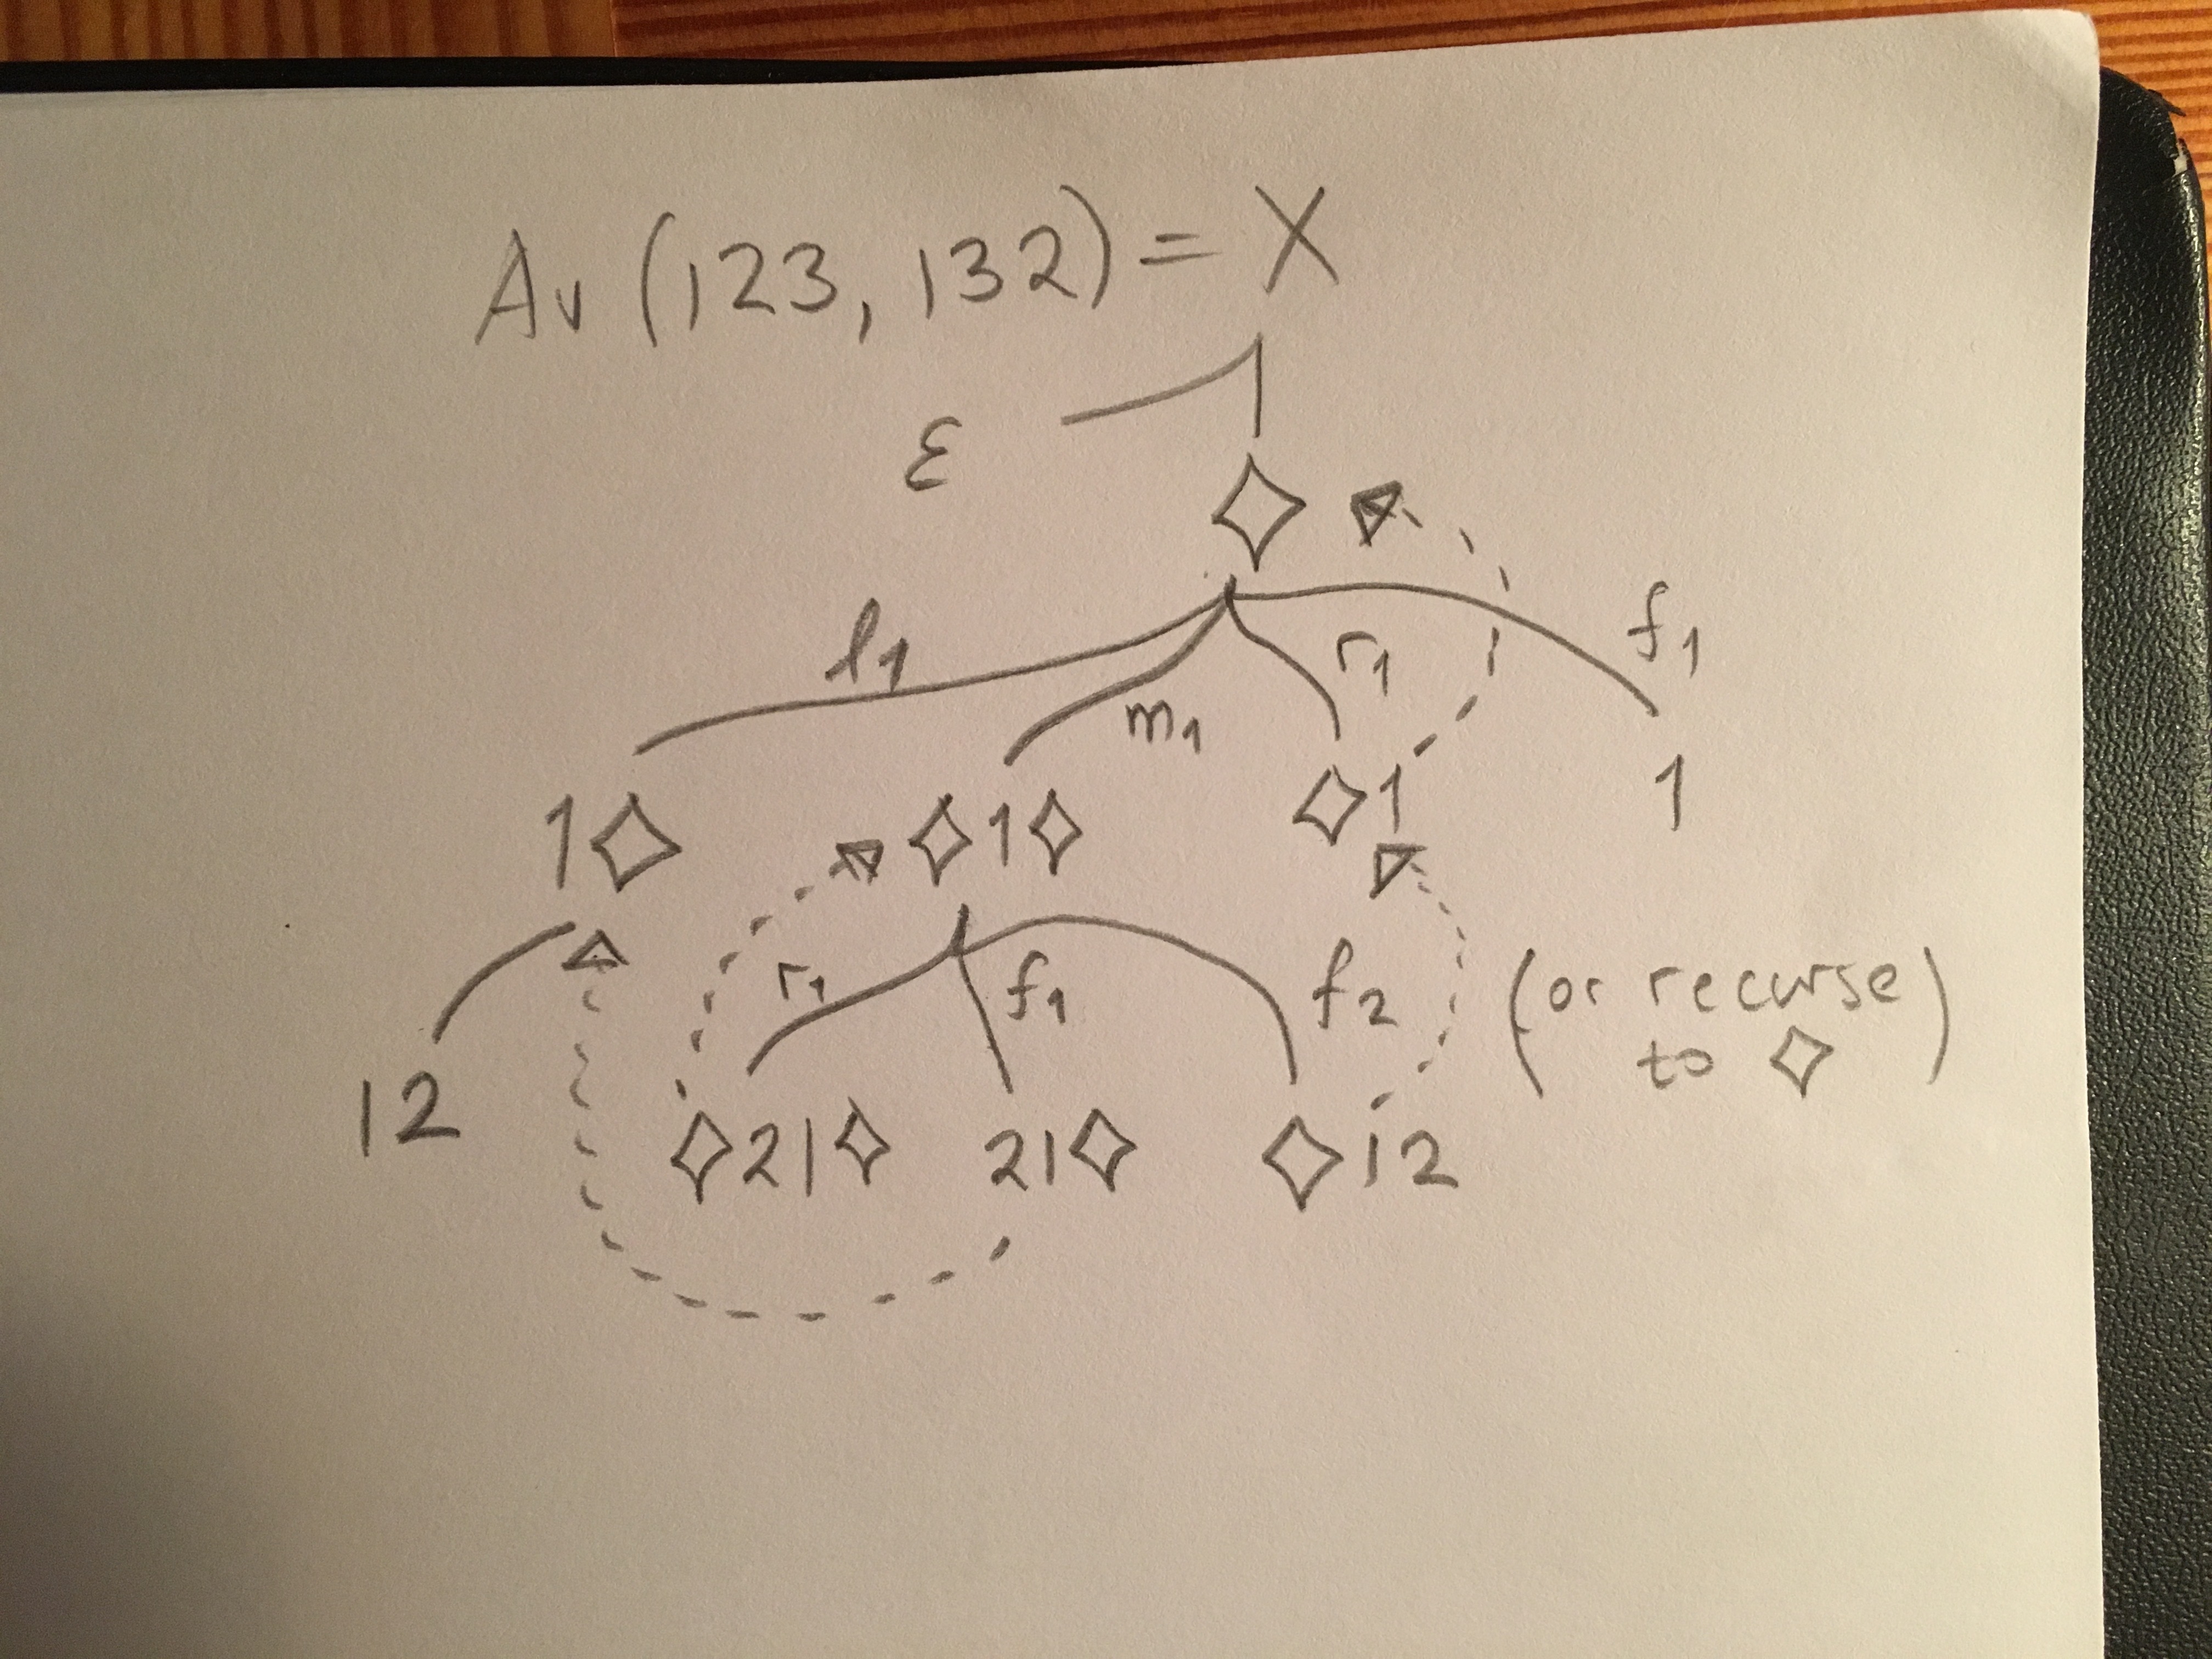 Av (123, 132) = X
ε ◇
l₁ m₁ r₁ f₁
1◇ ◇1◇ ◇1 1
r₁ f₁ f₂ (or recurse
to ◇)
12 ◇21◇ 21◇ ◇12